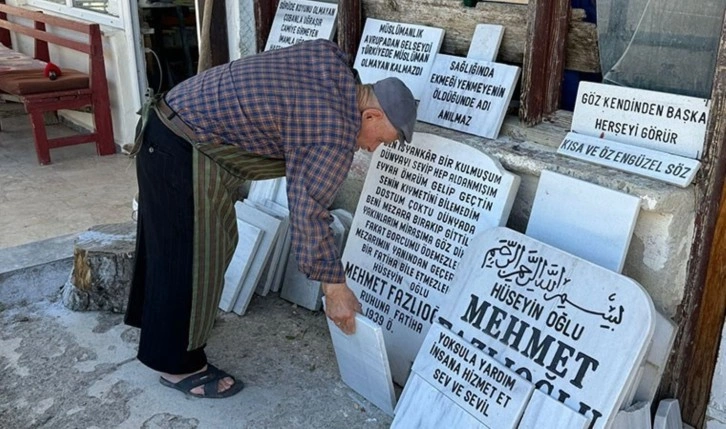 GÖRÜŞE KOYUN OLMAYAN
ÇOBANLA UĞRAŞIR
CAMİYE GİRMEYEN
İMAMLA
MÜSLÜMANLIK
AVRUPADAN GELSEYDİ
TÜRKİYEDE MÜSLÜMAN
OLMAYAN KALMAZDI
SAĞLIĞINDA
EKMEĞİ YENMEYENİN
ÖLDÜĞÜNDE ADI
ANILMAZ
GÖZ KENDİNDEN BAŞKA
HERŞEYİ GÖRÜR
KISA VE ÖZ ENGÜZEL SÖZ
BEN NANKÂR BİR KULMUŞUM
DÜNYAYI SEVİP HEP ALDANMIŞIM
EYVAH ÖMRÜM GELİP GEÇTİN
SENİN KIYMETİNİ BİLEMEDİM
DOSTUM ÇOKTU DÜNYADA
BENİ MEZARA BIRAKIP GİTTİLER
YAKINLARIM MİRASIMA GÖZ
FAKAT BORCUMU ÖDEMEZLER
MEZARIMIN YANINDAN GEÇER
BİR FATİHA BİLE ETMEZLER
HÜSEYİN OĞLU
MEHMET FAZLIOĞLU
RUHUNA FATİHA
1939 Ö.
بسم الله الرحمن الرحيم
HÜSEYİN OĞLU
MEHMET
FAZLIOĞLU
YOKSULA YARDIM
İNSANA HİZMET ET
SEV VE SEVİL